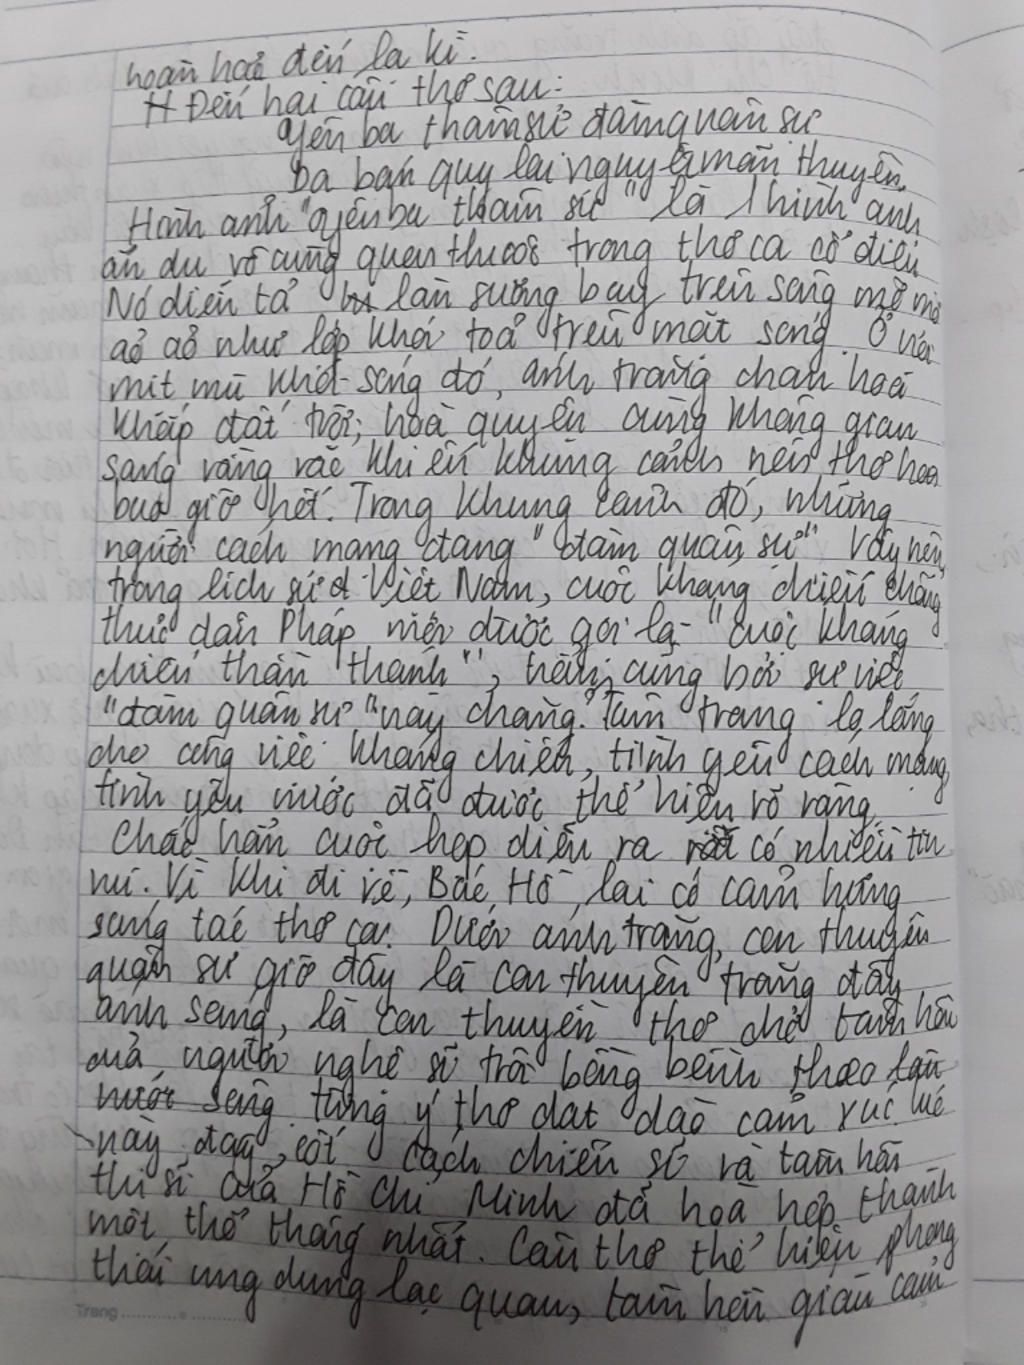 hoàn hoả đến la kì.
++ Đến hai câu thơ sau:
Yên ba thâm sử đàm quân sự
Dạ bán quy lai nguyệt mãn thuyền.
Hình ảnh "yên ba thâm sứ" là 1 hình ảnh
ẩn dụ vô cùng quen thuộc trong thơ ca cổ điển
Nó diễn tả làn sương bay trên sông mờ mờ
ảo ảo như lớp khói toả trên mặt sông. Ở nơi
mịt mù khói sóng đó, ánh trăng chan hoà
khắp đất trời, hoà quyện cùng không gian
sáng vằng vặc khiến khung cảnh nên thơ hơn
bao giờ hết. Trong khung cảnh đó, những
người cách mạng đang "đàm quân sự" Vậy nên,
trong lịch sử ở Việt Nam, cuộc kháng chiến chống
thực dân Pháp mới được gọi là "cuộc kháng
chiến thần thánh", cũng bởi sự việc
"đàm quân sự" này chăng. Tâm trạng lo lắng
cho công việc kháng chiến, tình yêu cách mạng,
tình yêu nước đã được thể hiện rõ ràng.
Chắc hẳn cuộc họp diễn ra có nhiều tin
vui. Vì khi đi về, Bác Hồ lại có cảm hứng
sáng tác thơ ca. Dưới ánh trăng, con thuyền
quân sự giờ đây là con thuyền trăng đầy
ánh sáng, là con thuyền thơ chở tâm hồn
của người nghệ sĩ trôi bồng bềnh theo làn
nước sông từng ý thơ dạt dào cảm xúc lúc
này đây, cốt cách chiến sĩ và tâm hồn
thi sĩ của Hồ Chí Minh đã hoà hợp thành
một thể thống nhất. Câu thơ thể hiện phong
thái ung dung lạc quan, tâm hồn giàu cảm
Trang